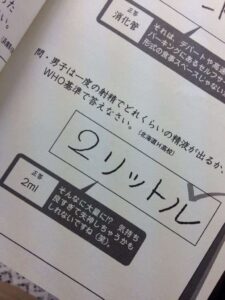 正答
消化管
それは、デパートや高速
パーキングにあるセルフサ
形式の食事スペースじゃない
問・男子は一度の射精でどれくらいの精液が出るか、
WHO基準で答えなさい。
2リットル
正答
2ml
そんなに大量に!? 気持ち
良すぎて失神しちゃうかも
しれないですね（笑）。